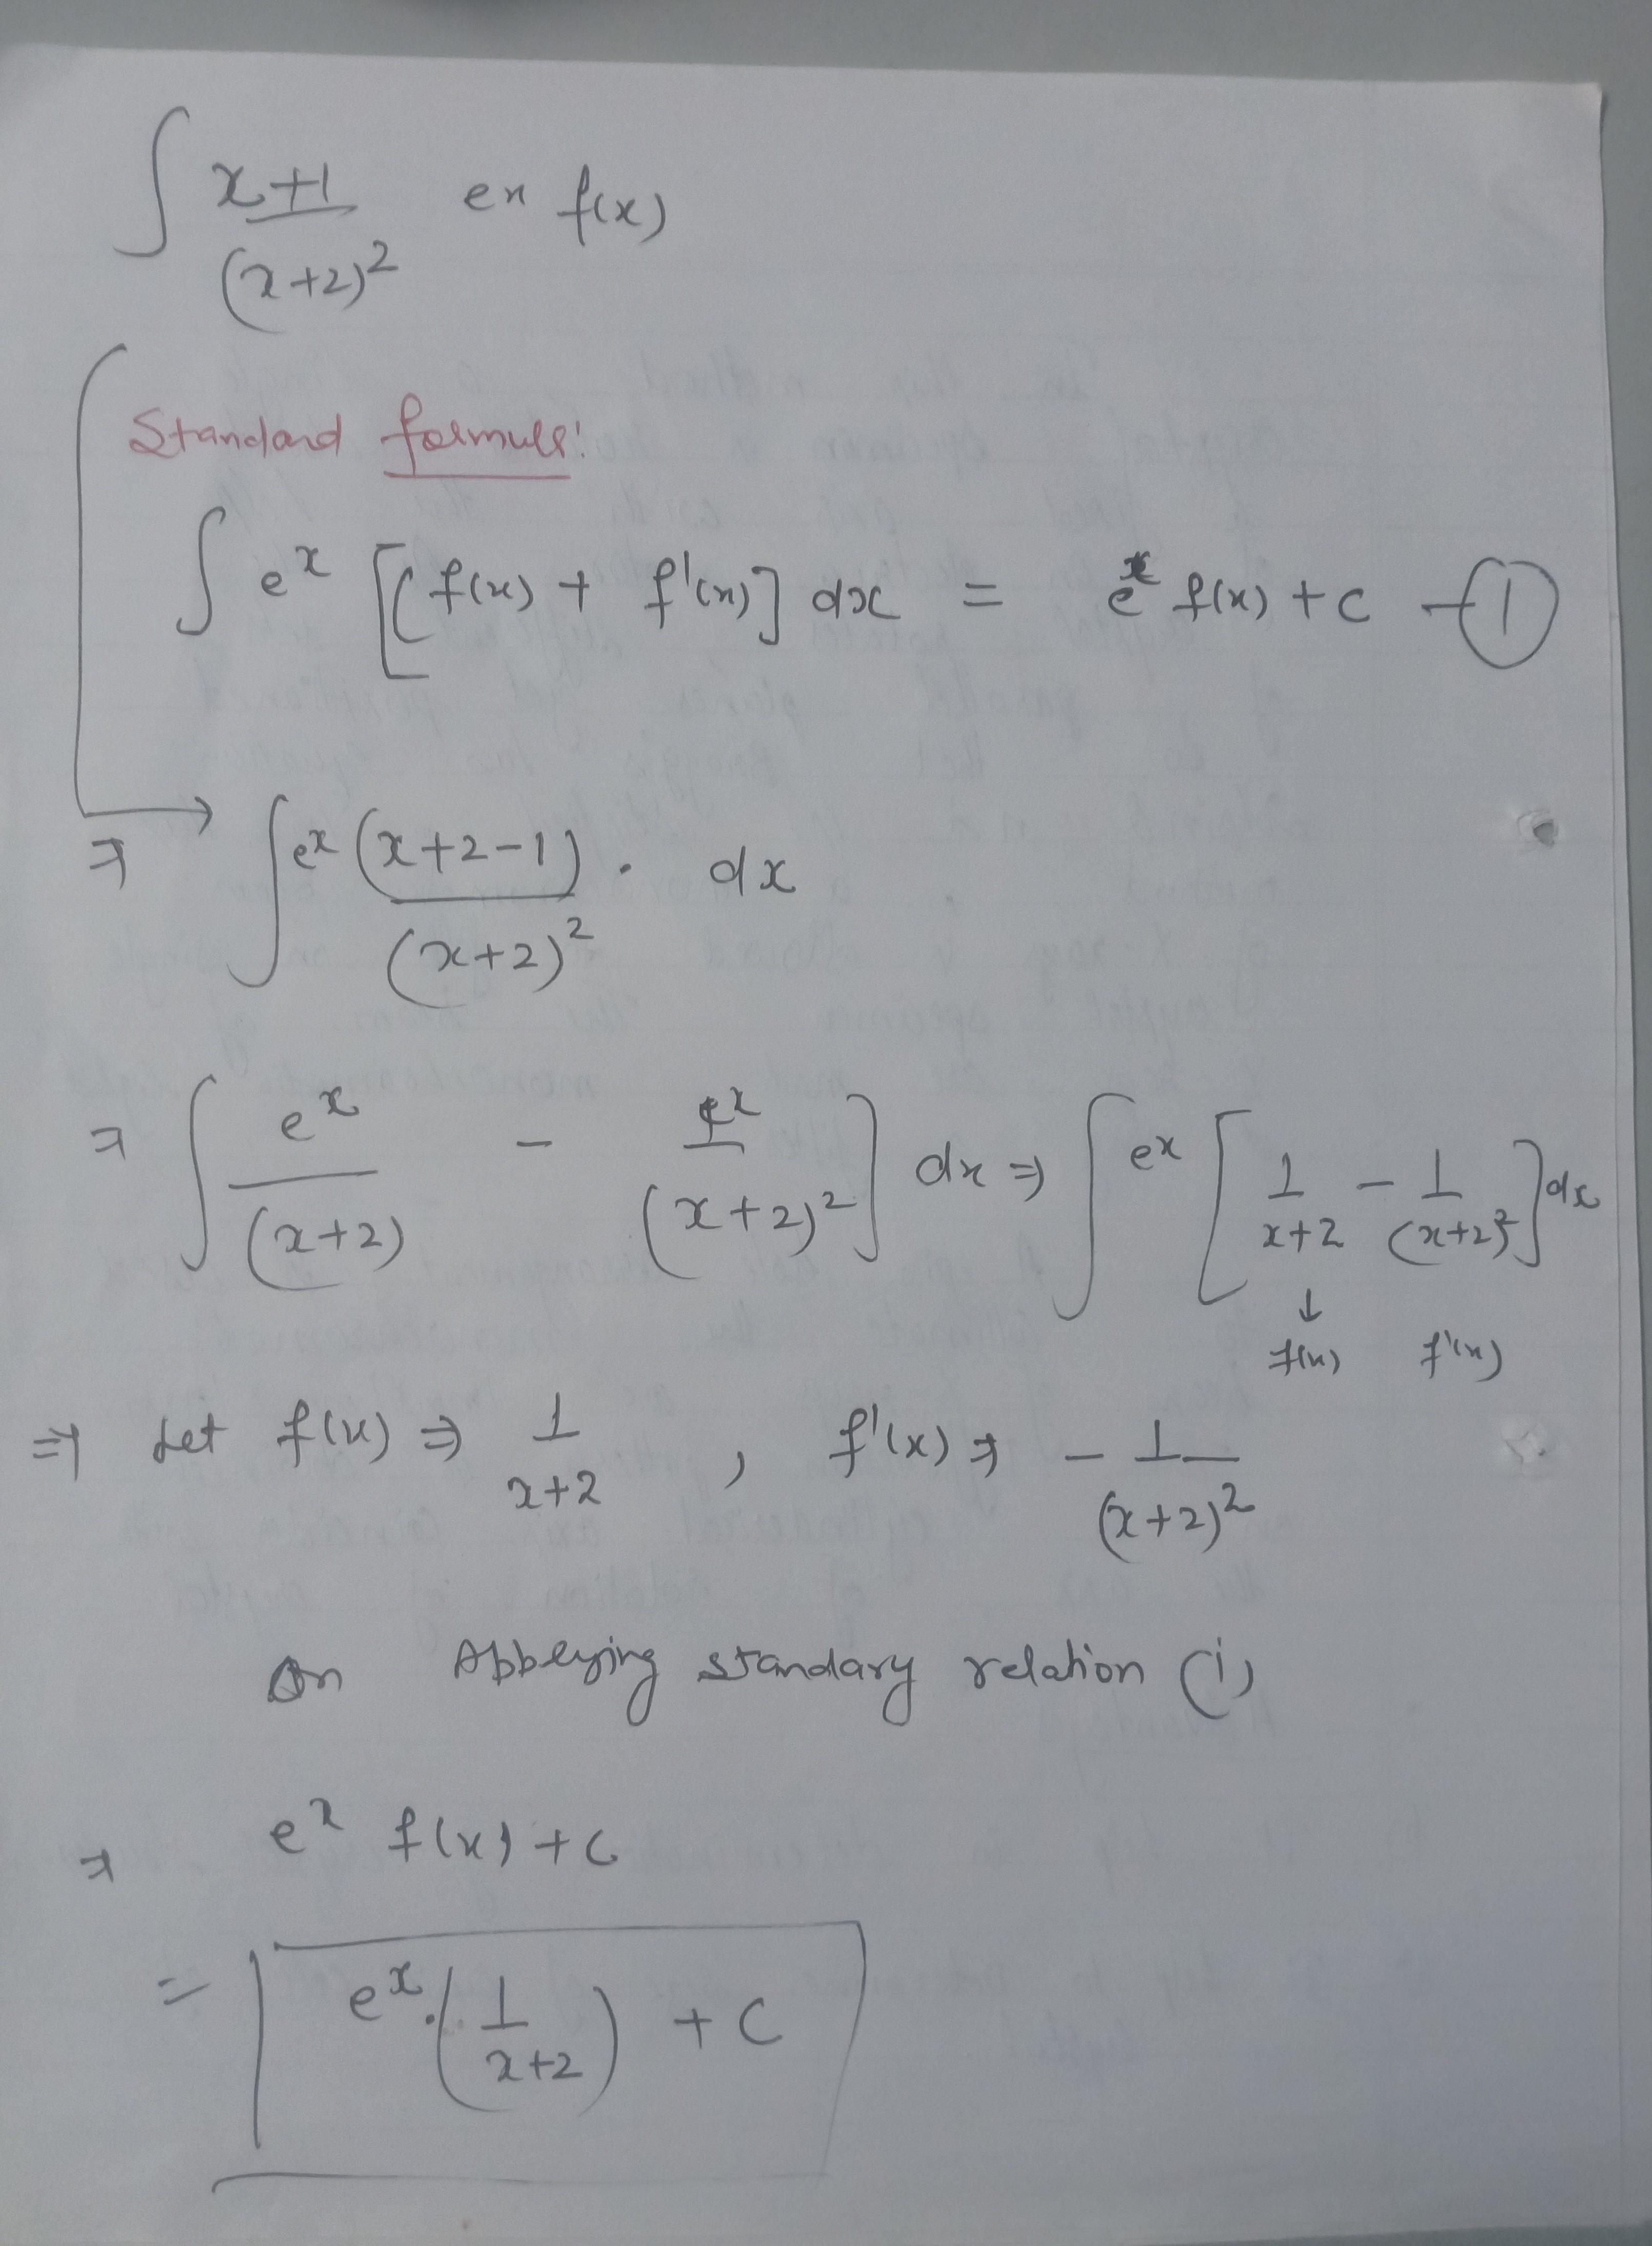 ∫ x+1/(x+2)² ex f(x)
Standard formule:
∫ e^x [(f(x) + f'(x)] dx = e^x f(x) + c —①
⇒ ∫ e^x (x+2-1)/(x+2)² . dx
⇒ ∫ e^x/(x+2) - e^x/(x+2)²] dx ⇒ ∫ e^x [1/x+2 - 1/(x+2)²] dx
↓
f(x) f'(x)
⇒ Let f(x) ⇒ 1/x+2 , f'(x) ⇒ - 1/(x+2)²
On Abblying standary relation (i)
⇒ e^x f(x) + c
= e^x . (1/x+2) + C